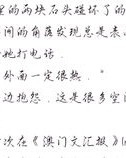 里的两块石头碰坏了的
间的角落发现总是表
她打电话.
外面一定很热.
边抱怨.这是很多空
次在《澳门文汇报》